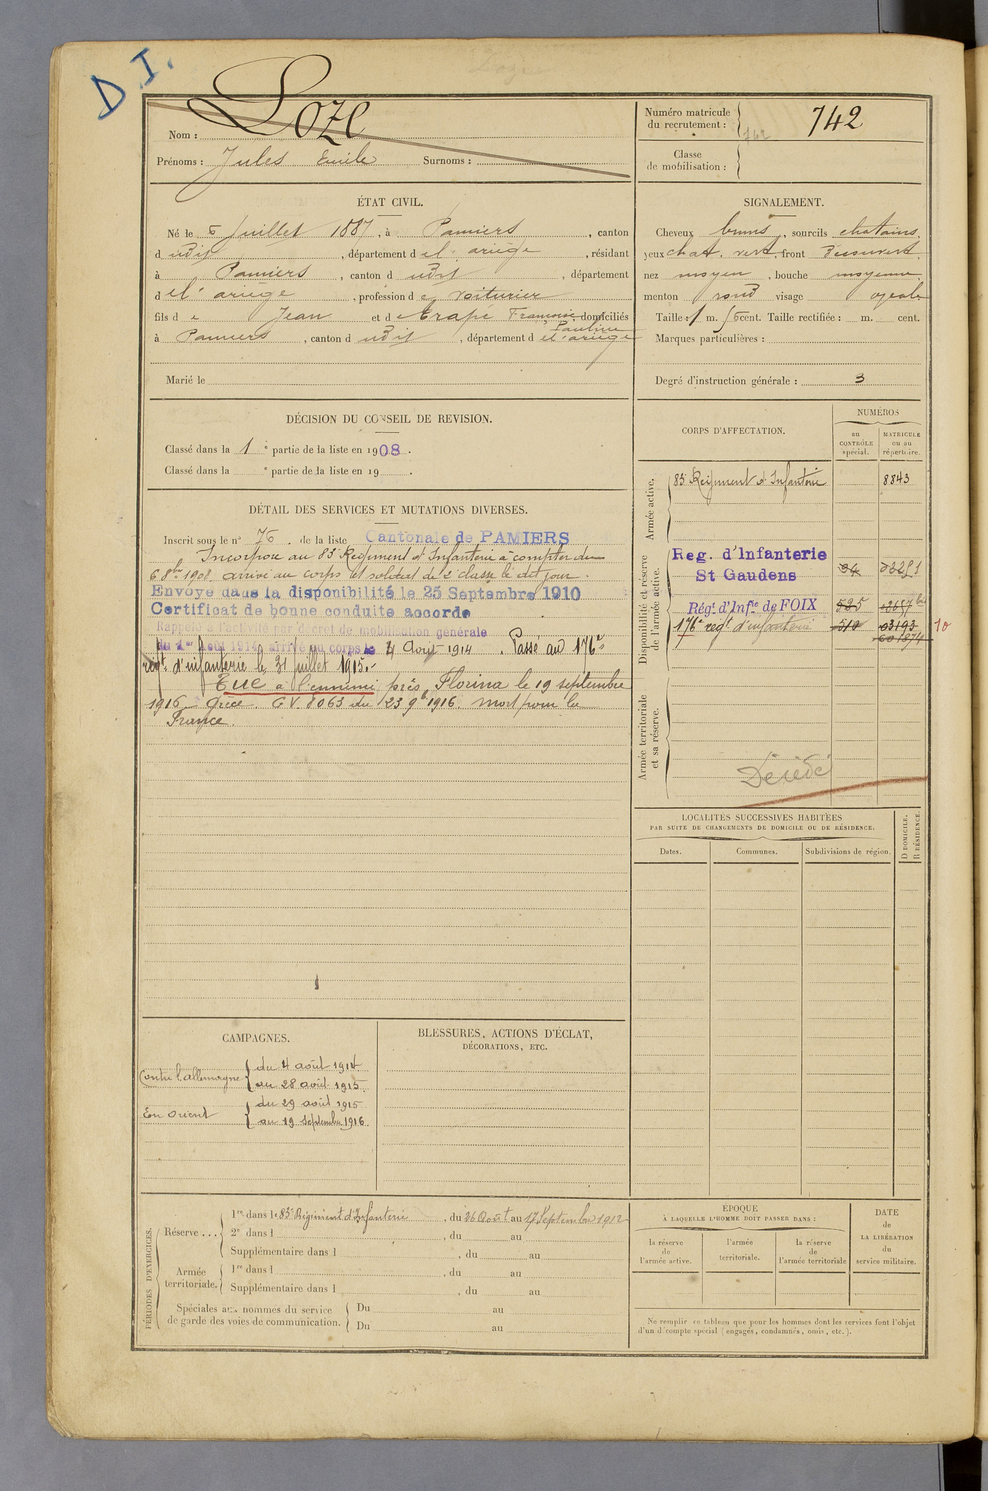 D. I.
Nom : Loze
Prénoms : Jules Emile Surnoms :
Numéro matricule
du recrutement : 742
Classe
de mobilisation :
ÉTAT CIVIL.
Né le 6 Juillet 1887, à Pamiers, canton
d udit, département de l'ariège, résidant
à Pamiers, canton d udit, département
de l'ariège, profession de voiturier
fils de Jean et de Trapé Françoise domiciliés
Pauline
à Pamiers, canton d udit, département de l'ariège
Marié le
SIGNALEMENT.
Cheveux bruns, sourcils chatains
yeux chat. vert, front découvert
nez moyen, bouche moyenne
menton rond visage ovale
Taille : 1 m. 56 cent. Taille rectifiée : m. cent.
Marques particulières :
Degré d'instruction générale : 3
DÉCISION DU CONSEIL DE REVISION.
Classé dans la 1e partie de la liste en 1908.
Classé dans la e partie de la liste en 19 .
DÉTAIL DES SERVICES ET MUTATIONS DIVERSES.
Inscrit sous le n° 76 de la liste Cantonale de PAMIERS
Incorporé au 83e Régiment d'Infanterie à compter du
6 8bre 1908, arrivé au corps et soldat de 2e classe le dit jour.
Envoyé dans la disponibilité le 25 Septembre 1910
Certificat de bonne conduite accordé
Rappelé à l'activité par décret de mobilisation générale
du 1er Août 1914 arrivé au corps le 4 Août 1914. Passé au 176e
régt. d'infanterie le 31 juillet 1915.
Tué à l'ennemi près Florina le 19 septembre
1916 Grèce. G.V. 8063 du 23 9bre 1916. mort pour la
France.
CORPS D'AFFECTATION.
NUMÉROS
au
CONTRÔLE
spécial.
MATRICULE
ou au
répertoire.
Armée active.
83e Régiment d'Infanterie 8843
Disponibilité et réserve
de l'armée active.
Reg. d'Infanterie
St Gaudens
Régt d'Infie de FOIX 525
176e regt d'infanterie 03193 10
Armée territoriale
et sa réserve.
Décédé
LOCALITÉS SUCCESSIVES HABITÉES
PAR SUITE DE CHANGEMENTS DE DOMICILE OU DE RÉSIDENCE.
Dates. Communes. Subdivisions de région.
D DOMICILE.
R RÉSIDENCE.
CAMPAGNES.
Contre l'allemagne du 4 août 1914
au 28 août 1915.
En Orient du 29 août 1915
au 19 septembre 1916
BLESSURES, ACTIONS D'ÉCLAT,
DÉCORATIONS, ETC.
PÉRIODES D'EXERCICES.
Réserve ... 1re dans le 83e Régiment d'Infanterie, du 26 Août au 17 Septembre 1912
2e dans l , du au
Supplémentaire dans l , du au
Armée
territoriale. 1re dans l , du au
Supplémentaire dans l , du au
Spéciales aux hommes du service
de garde des voies de communication. Du au
Du au
ÉPOQUE
À LAQUELLE L'HOMME DOIT PASSER DANS :
la réserve
de
l'armée active.
l'armée
territoriale.
la réserve
de
l'armée territoriale
DATE
de
LA LIBÉRATION
du
service militaire.
Ne remplir ce tableau que pour les hommes dont les services font l'objet
d'un décompte spécial (engagés, condamnés, omis, etc.).